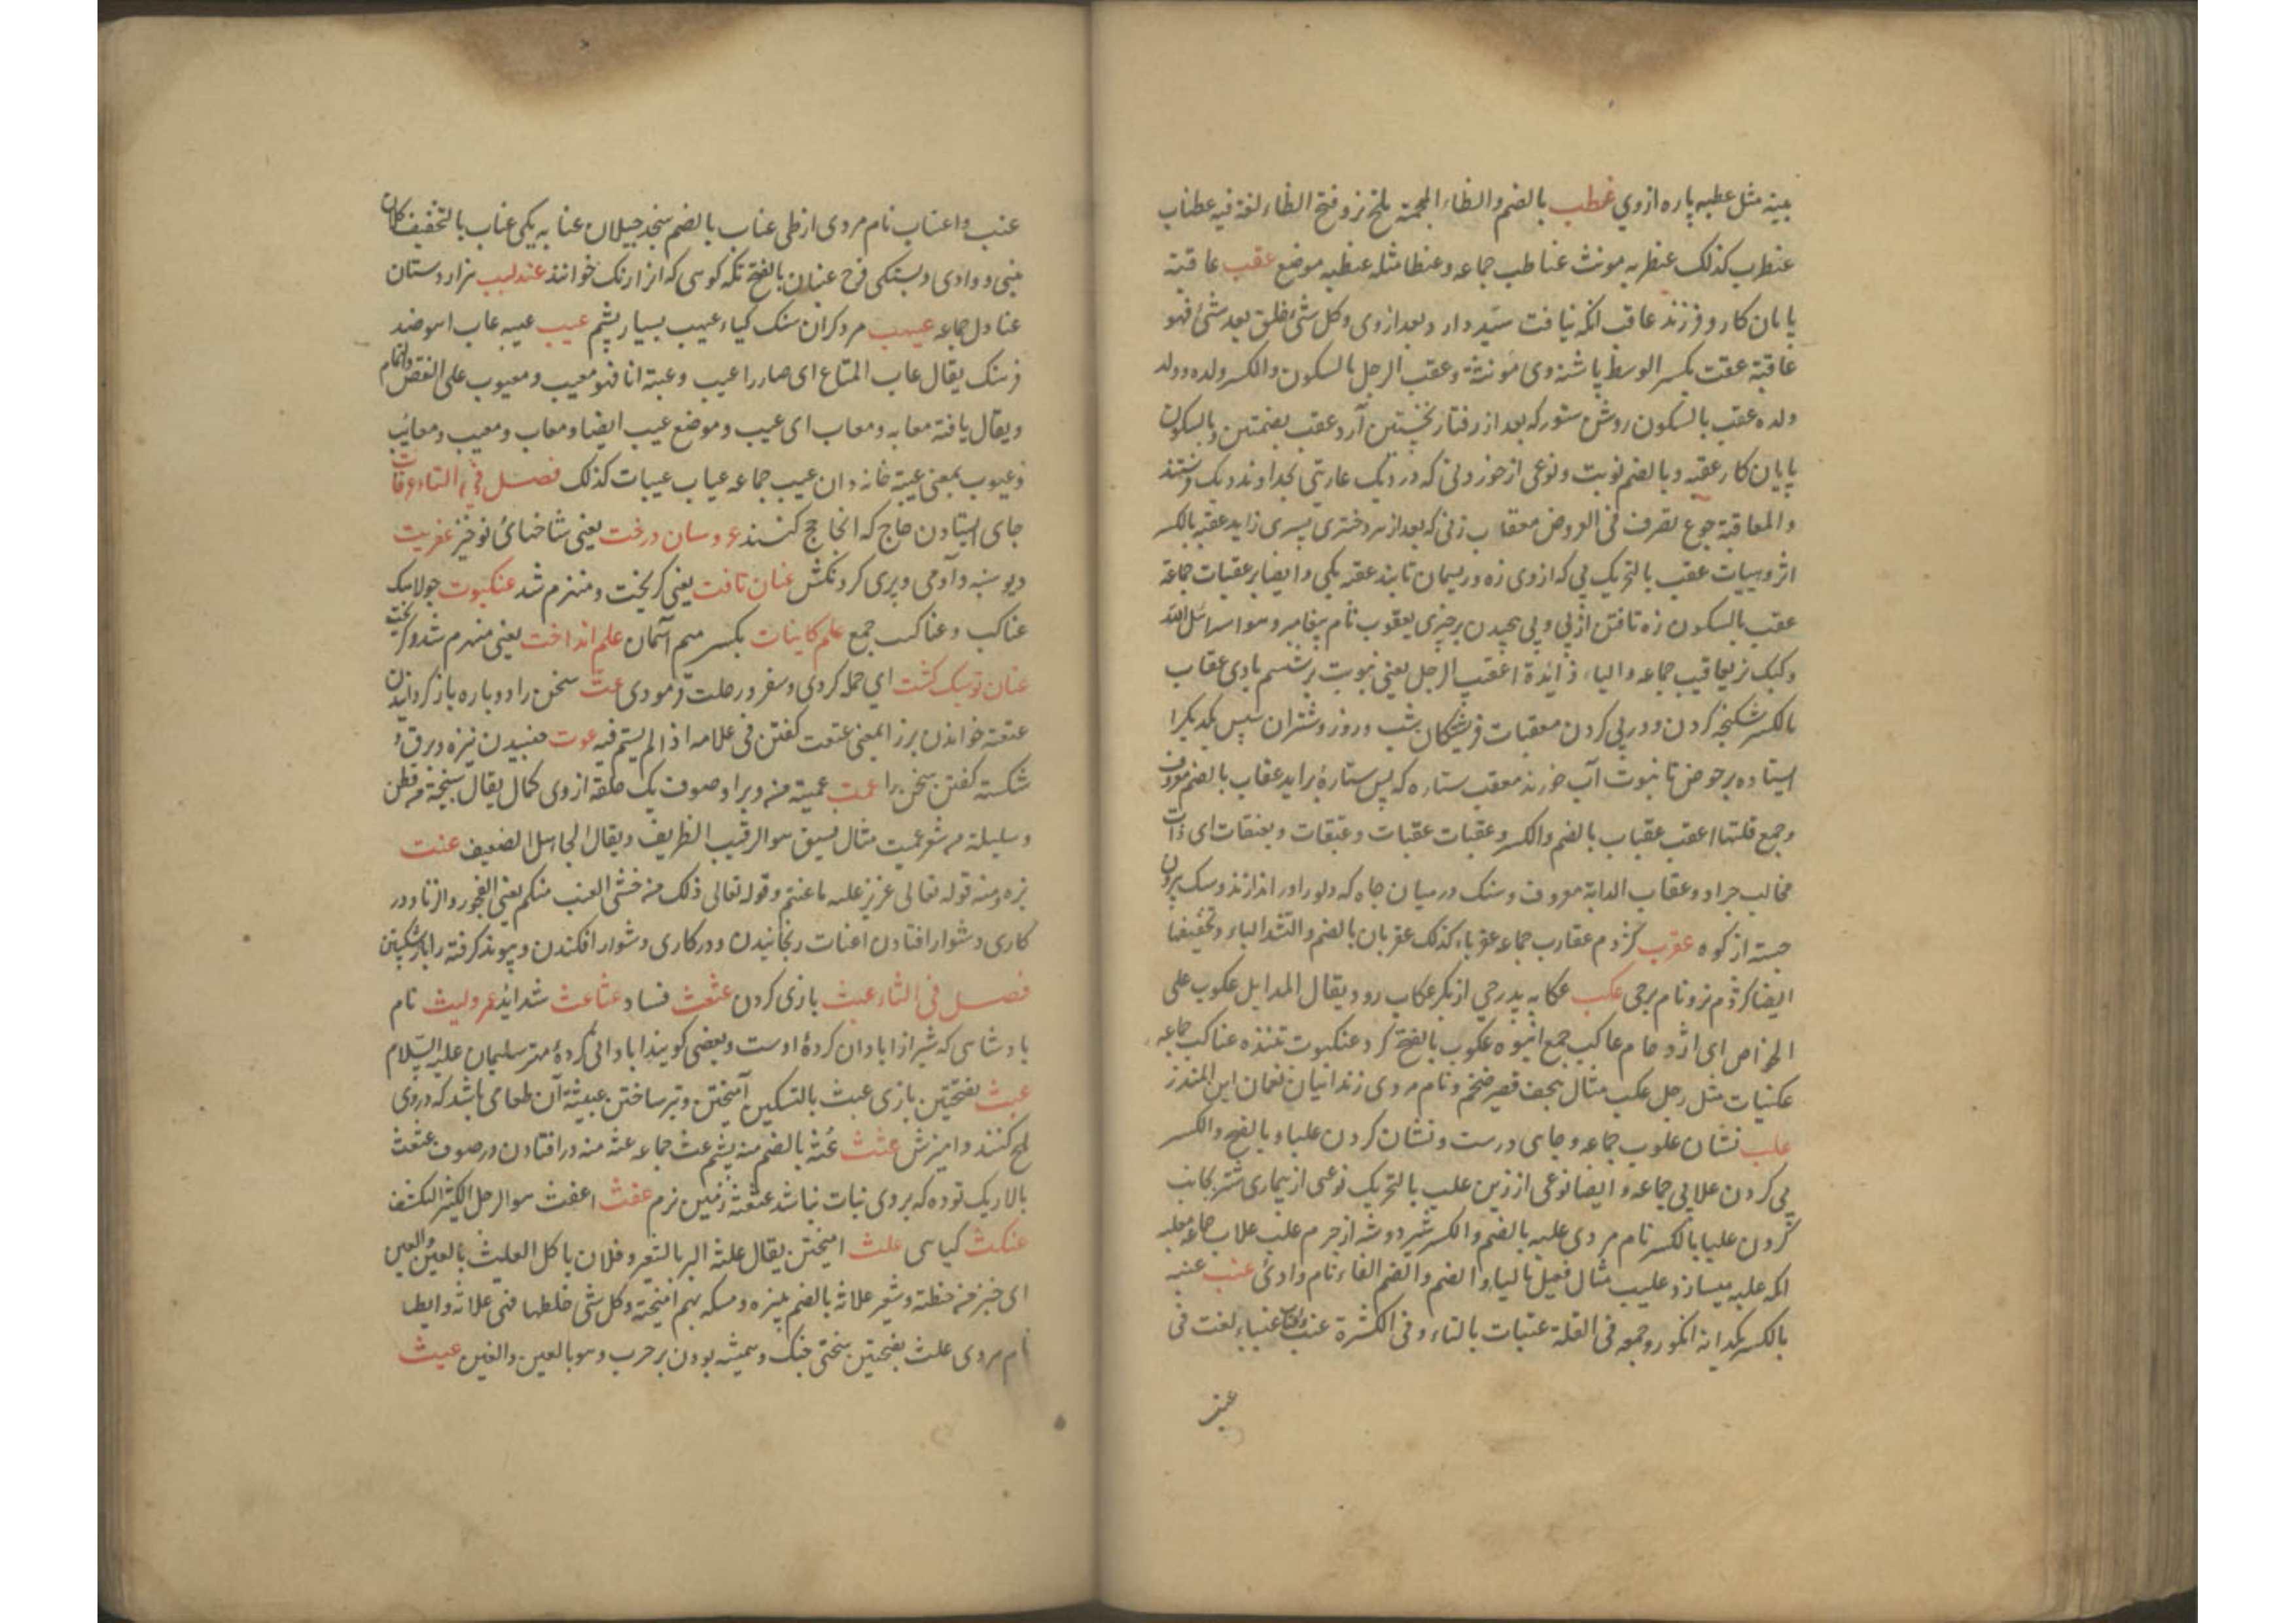 پنبه مثل عطبه پاره ازوی عطب بالضم والظاء المعجمة ملخ نر و فتح الظاء لغة فیه عظناب
عنظرب کذلک عنظربه مونث عناظب جماعه وعنظا مثله عنظبه موضع عقب عاقبة
پایان کار و فرزند عاقب انکه نیافت سید دار و بعد ازوی وکل شئ خلق بعد شئ فهو
عاقبة عقب بکسر الوسط پاشنه وی مؤنثة وعقب الرجل بالسکون والکسر ولده وولد
ولده عقب بالسکون روش ستور که بعد از رفتار نخستین آرد عقب بضمتین وبالسکون
پایان کار عقبه وبالضم نوبت ونوعی از خوردنی که در دیک عاریتی بخداوند دیک فرستند
والمعاقبة جوع تصرف فی العروض معقاب زنی که بعد از هر دختری پسری زاید عقبه بالکسر
اثر وهیبات عقب بالتحریک پی که ازوی زه وریسمان تابند عقبه یکی وایضا بر عقبات جماعة
عقب بالسکون زه تافتن از پی وپی پیچیدن بر چیزی یعقوب نام پیغامبر وهو اسرائیل الله
وکبک نر یعاقیب جماعه والیاء زائدة اعقب الرجل یعنی بنوبت برنشستم بادی عقاب
بالکسر شکنجه کردن ودر پی کردن معقبات فریشتکان شب وروز وشتران سپس یکدیکرا
ایستاده بر حوض تا بنوبت آب خورند معقب ستاره که پس ستارۀ براید عقاب بالضم معروف
وجمع قلتها اعقب عقباب بالضم والکسر وعقبات عقبات وعقبقات وبعنقات ای ذات
مخالب حداد وعقاب الدابة معروف وسنک در میان چاه که دلو را در اندازند وسنک بیرون
جسته از کوه عقرب کژدم عقارب جماعه عقرباء کذلک عقربان بالضم والتشد الباء وتخفیفها
ایضا کژدم نر ونام برجی عکب عکابه پدر حی از بکر عکاب رود یقال المد ابل عکوب علی
الحوض ای ازدحام عاکب جمع انبوه عکوب بالفتح کرد عنکبوت تننده عناکب جماعه
عکنبات مثل رجل عکب مثال هجف قصیر ضخم ونام مردی زندانبان نعمان ابن المنذر
علب نشان علوب جماعه وجاهی درست ونشان کردن علباء وبالفتح والکسر
پی کردن علابی جماعه وایضا نوعی از زین علب بالتحریک نوعی از بیماری شتر بجانب
کردن علبا بالکسر نام مردی علبه بالضم والکسر شیردوشه از چرم علب علاب جماعه معلب
انکه علبه میسازد وعلیب مثال فعیل بالیاء والضم والضم الفاء نام وادئ عنب عنبه
بالکسر یکدانه انکور وجمعه فی القلة عنبات بالتاء وفی الکثرة عنب واعناب عنباء لغت فی
عنب
عنب واعناب نام مردی از طی عناب بالضم سنجد جیلان عنابه یکی عناب بالتخفیف کلان
بینی ووادی وبستکی فرج عنبان بالفتح تکه کوهی که انرا رنک خوانند عندلیب هزاردستان
عنادل جماعه عیهب مرد کران سنک کیاء عیهب بسیار پشم عیب عیبه عاب اهو ضد
فرهنک یقال عاب المتاع ای صار ذا عیب وعبته انا فهو معیب ومعیوب علی النقص والتمام
ویقال یافته معابه ومعاب ای عیب وموضع عیب ایضا ومعاب ومعیب ومعائب
وعیوب بمعنی عیبة خانه دان عیب جماعه عیاب عیبات کذلک فصل فی التاء عرفات
جای ایستادن حاج که انجا حج کنند عروسان درخت یعنی شاخهائ نو خیز عفریت
دیو ستنبه وآدمی وپری کردنکش عنان تافت یعنی کریخت ومنهزم شد عنکبوت جولاهک
عناکب وعناکب جمع علم کاینات بکسر میم آسمان علم انداخت یعنی منهزم شد وکریخت
عنان تو سبک کشت ای حمله کردی وسفر ورحلت فرمودی عت سخن را دوباره باز کردانیدن
عتعته خواندن بز را بمعنی عتعت کفتن فی علامه اذا لم یستم فیه عرت جنبیدن نیزه وبرق و
شکسته کفتن سخن را عمت عمیته منه وبر او صوف یک حلقه ازوی کمال یقال سبیخة من قطن
وسلیلة من شعر عمیت مثال فسیق هو الرقیب الظریف ویقال الجاهل الضعیف عنت
بزه ومنه قوله تعالی عزیز علیه ما عنتم وقوله تعالی ذلک لمن خشی العنت منکم یعنی الفجور والزنا ودر
کاری دشوار افتادن اعنات رنجانیدن ودر کاری دشوار افکندن وپیوند کرفته را باز شکستن
فصل فی الثاء عبث بازی کردن عثعث فساد عثاعث شداید عمرو لیث نام
پادشاهی که شیراز ابادان کردۀ اوست وبعضی کویند ابادانی کردۀ مهتر سلیمان علیه السلام
عبث بفتحتین بازی عبث بالتسکین آمیختن وتر ساختن عبیثة آن طعامی باشد که دروی
ملخ کنند وامیزش عثث عثة بالضم منه پشم عث جماعه عثه منه در افتادن در صوف عثعث
بالا ریک توده که بروی نبات نباشد عثعثة زمین نرم عفث اعفث هو الرجل الکثیر التکشف
عنکث کیاهی علث امیختن یقال علثه البر بالشعیر وفلان یاکل العلیث بالعین والغین
ای خبز من حنطة وشعیر علاثة بالضم پنیره ومسکه بهم امیخته وکل شئ خلطها فهی علاثة وایضا
نام مردی علث بفتحتین سختی جنک وهمیشه بودن بر حرب وهو بالعین والغین عیث